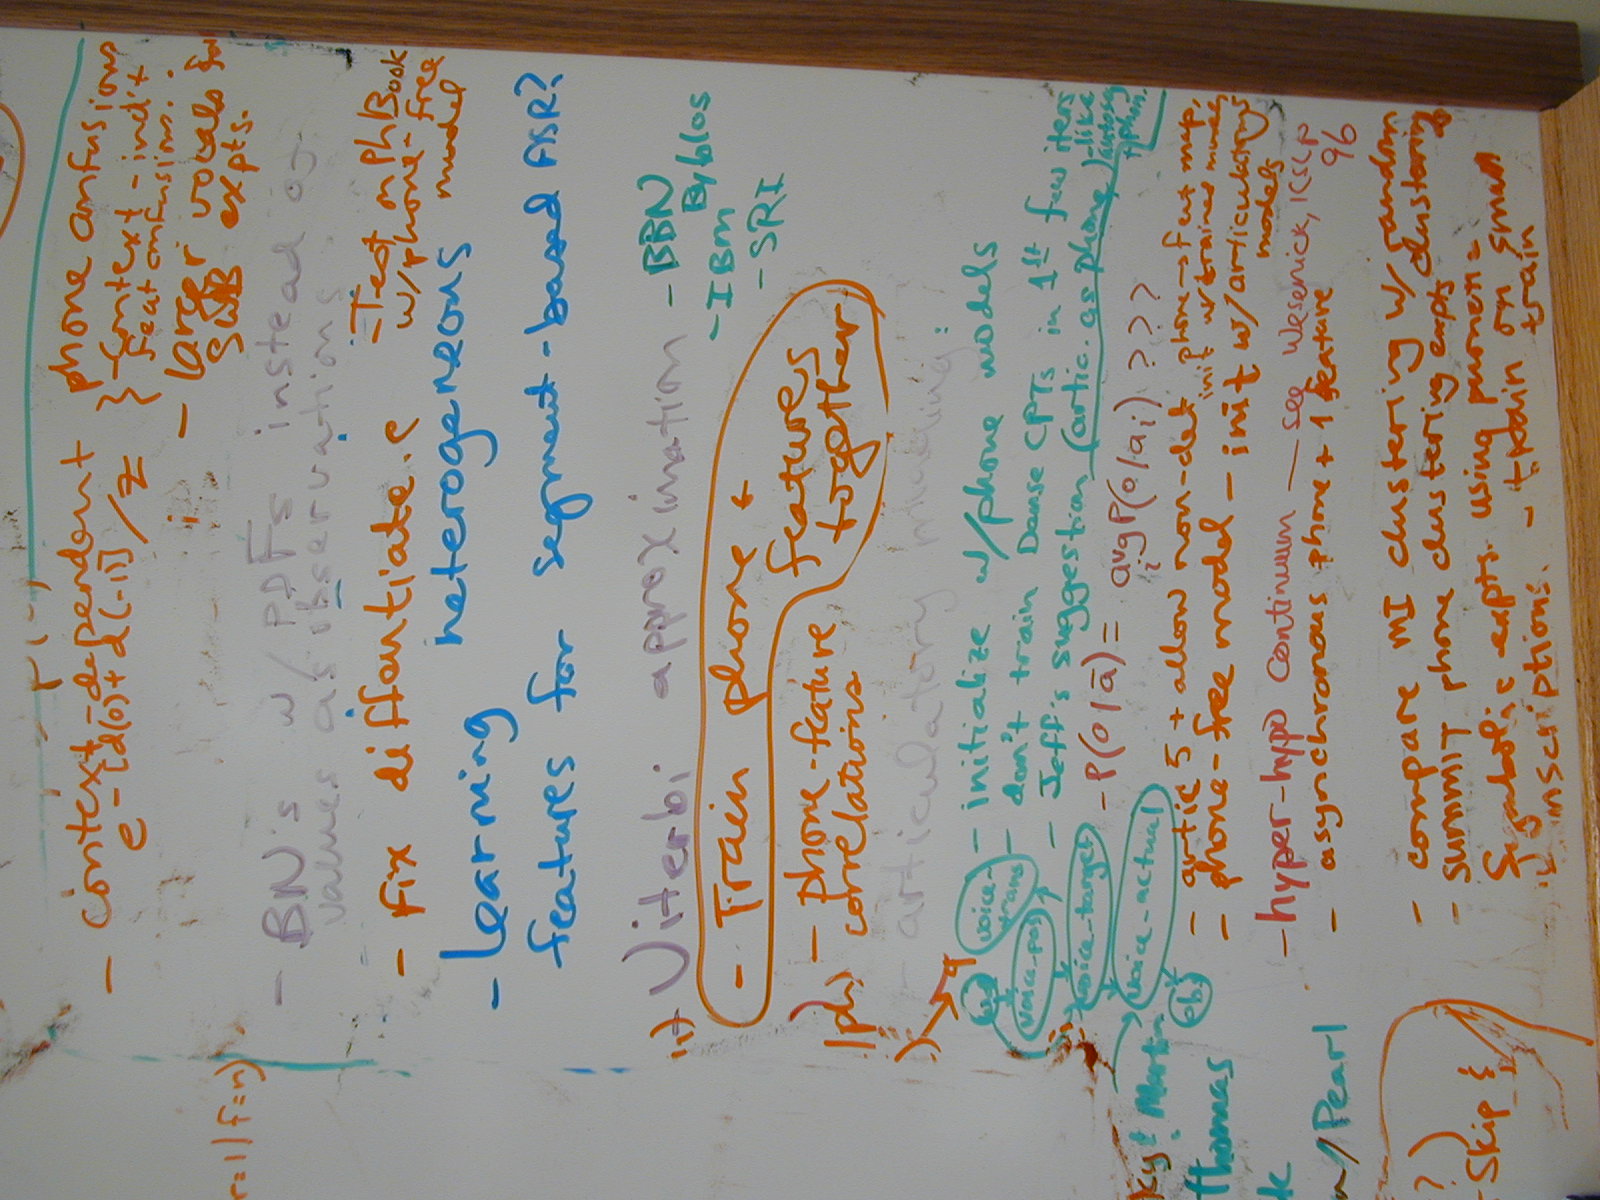 - context-dependent phone confusions
e-[d(0)+d(-1)]/z } context-ind't
feat confusion.
- larger vocabs for
SWB expts.
- BN's w/ PDFs instead of
values as observations
- Fix differentiate.c
- Test on PhBook
w/phone-free
model
- Learning heterogeneous
features for segment-based ASR?
- Viterbi approximation
- BBN
Byblos
- IBM
- SRI
- Train phone +
features
together
- phone-feature
correlations
- articulatory modeling:
- initialize w/phone models
- don't train Dense CPTs in 1st few iters
- Jeff's suggestion (artic. as phone)
- P(o|a) = avg P(o|ai) ? ? ?
i
- artic 5 + allow non-det phone→feat map,
init w/trained model
- phone-free model - init w/articulatory
models
- hyper-hypo continuum - see Wesenick, ICSLP
96
- asynchronous phone + 1 feature
- compare MI clustering w/random
- SUMMIT phone clustering expts
Symbolic expts. using
inscriptions. - train on small
train
voice-
trans
voice-pos
voice-target
voice-actual
obs
|ph)
r=1|f=n)
Martin
Thomas
w/Pearl
?)
-Skip_{